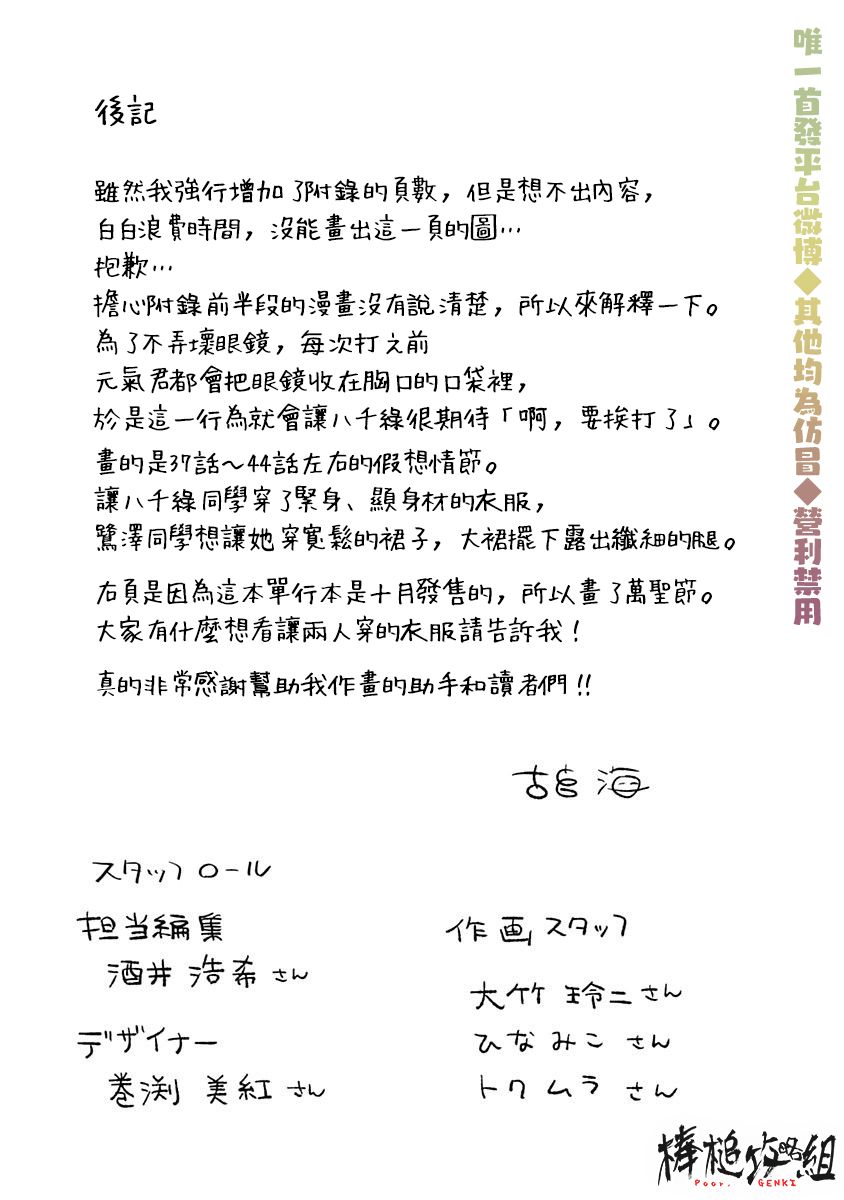 後記
雖然我強行增加了附錄的頁數，但是想不出內容，
白白浪費時間，沒能畫出這一頁的圖…
抱歉…
擔心附錄前半段的漫畫沒有說清楚，所以來解釋一下。
為了不弄壞眼鏡，每次打之前
元氣君都會把眼鏡收在胸口的口袋裡，
於是這一行為就會讓八千綠很期待「啊，要挨打了」。
畫的是37話～44話左右的假想情節。
讓八千綠同學穿了緊身、顯身材的衣服，
鷺澤同學想讓她穿寬鬆的裙子，大裙擺下露出纖細的腿。
右頁是因為這本單行本是十月發售的，所以畫了萬聖節。
大家有什麼想看讓兩人穿的衣服請告訴我！
真的非常感謝幫助我作畫的助手和讀者們!!
古宮 海
スタッフロール
担当編集
酒井 浩希 さん
デザイナー
巻渕 美紅 さん
作画スタッフ
大竹 玲二 さん
ひなみこ さん
トクムラ さん
唯一首發平台微博◆其他均為仿冒◆營利禁用
棒槌攻略組
Poor. GENKI